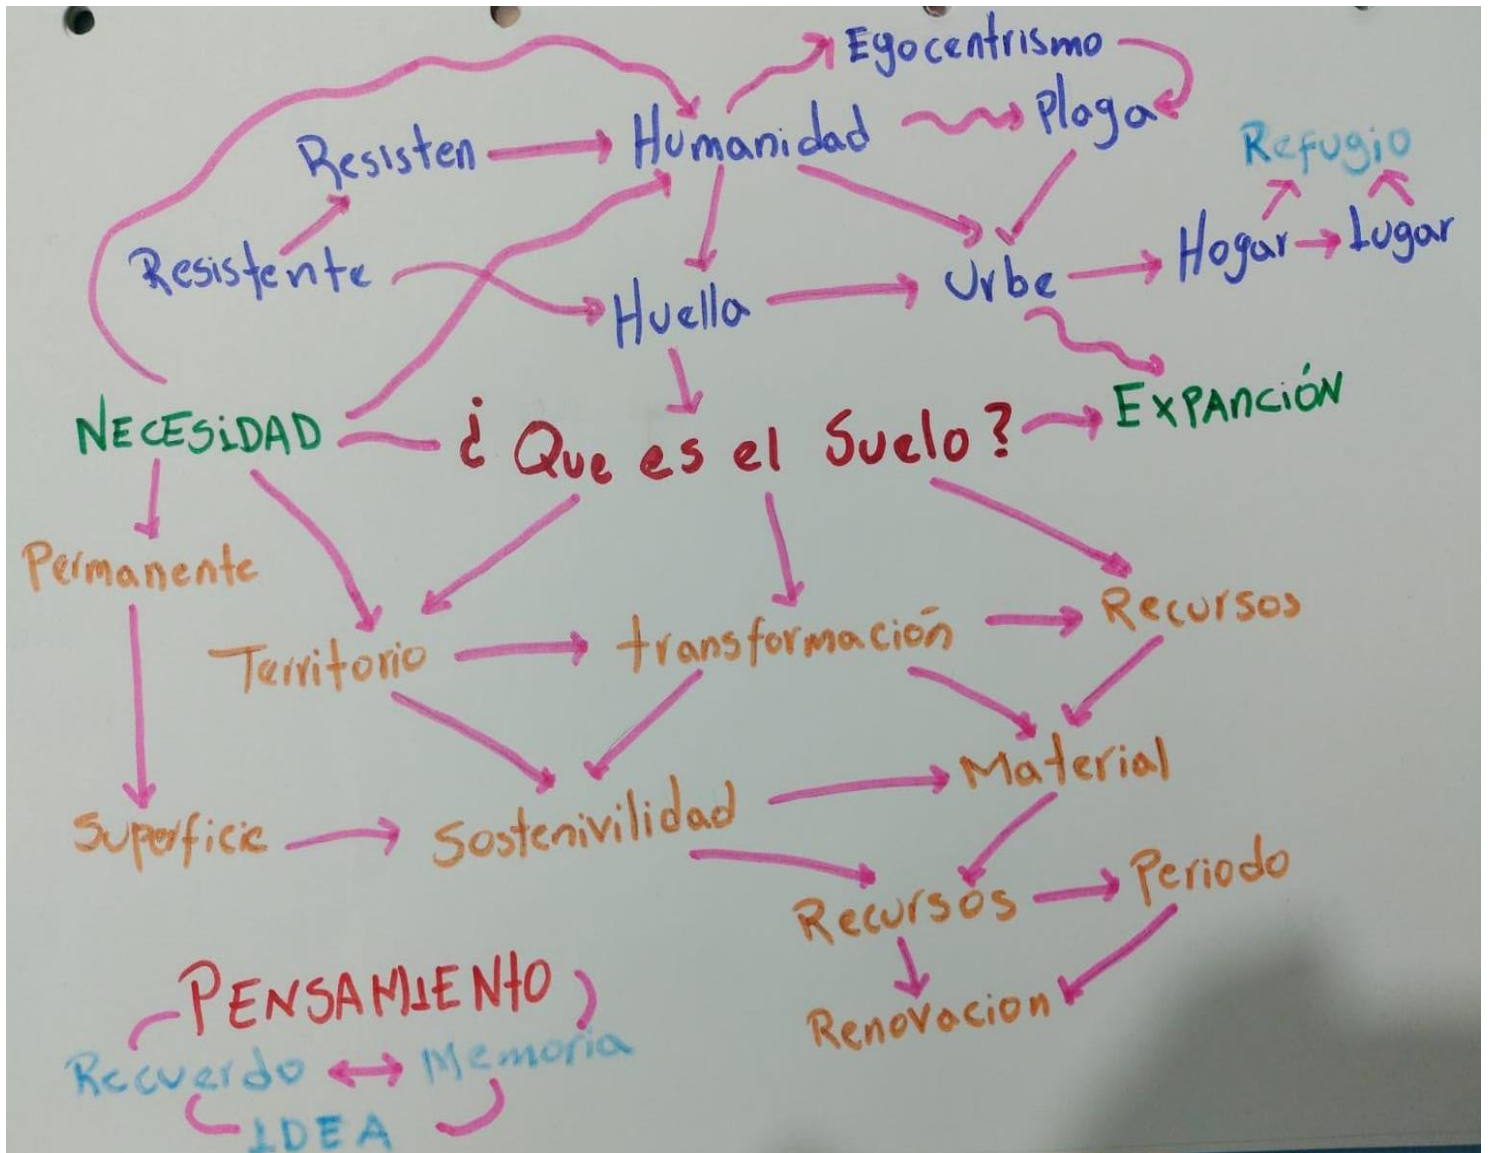 Egocentrismo
Resisten Humanidad Plaga
Refugio
Resistente Huella Urbe Hogar Lugar
NECESiDAD ¿Que es el Suelo? EXPAnCIÓN
Permanente
Territorio transformación Recursos
Superficie Sostenivilidad Material
Recursos Periodo
Renovacion
PENSAMIENtO
Recuerdo Memoria
IDEA